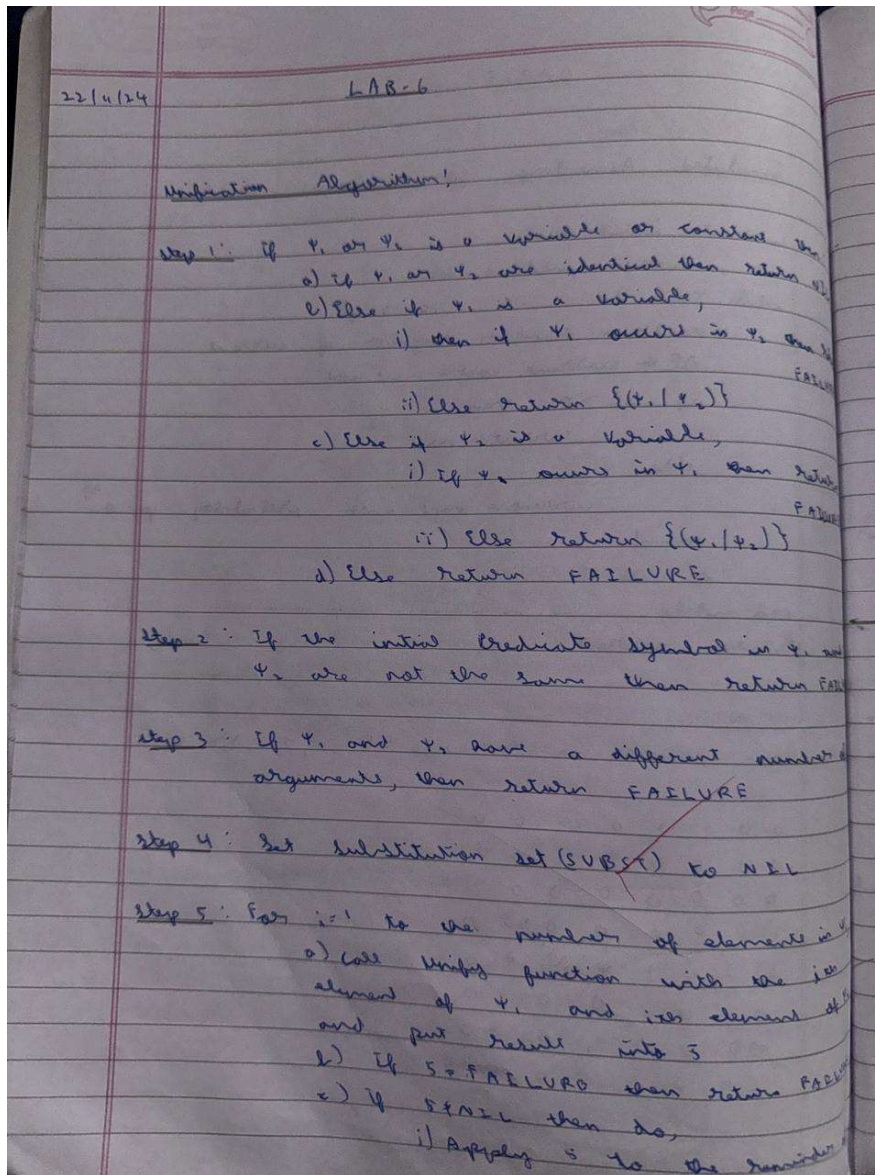 Page
22/11/24
LAB-6
Unification Algorithm:
Step 1: If Ψ₁ or Ψ₂ is a variable or constant then
a) If Ψ₁ or Ψ₂ are identical then return NIL
b) Else if Ψ₁ is a variable,
i) then if Ψ₁ occurs in Ψ₂ then
FAILUR
ii) Else return {(Ψ₁/Ψ₂)}
c) Else if Ψ₂ is a variable,
i) If Ψ₂ occurs in Ψ₁ then return
FAILURE
ii) Else return {(Ψ₁/Ψ₂)}
d) Else return FAILURE
Step 2: If the initial Predicate symbol in Ψ₁ and
Ψ₂ are not the same then return FAIL
Step 3: If Ψ₁ and Ψ₂ have a different number of
arguments, then return FAILURE
Step 4: Set substitution set (SUBST) to NIL
Step 5: For i=1 to the number of elements in Ψ₁
a) Call Unify function with the ith
element of Ψ₁ and ith element of Ψ₂
and put result into S
b) If S = FAILURE then return FAILU
c) If S≠NIL then do,
i) Apply S to the remainder